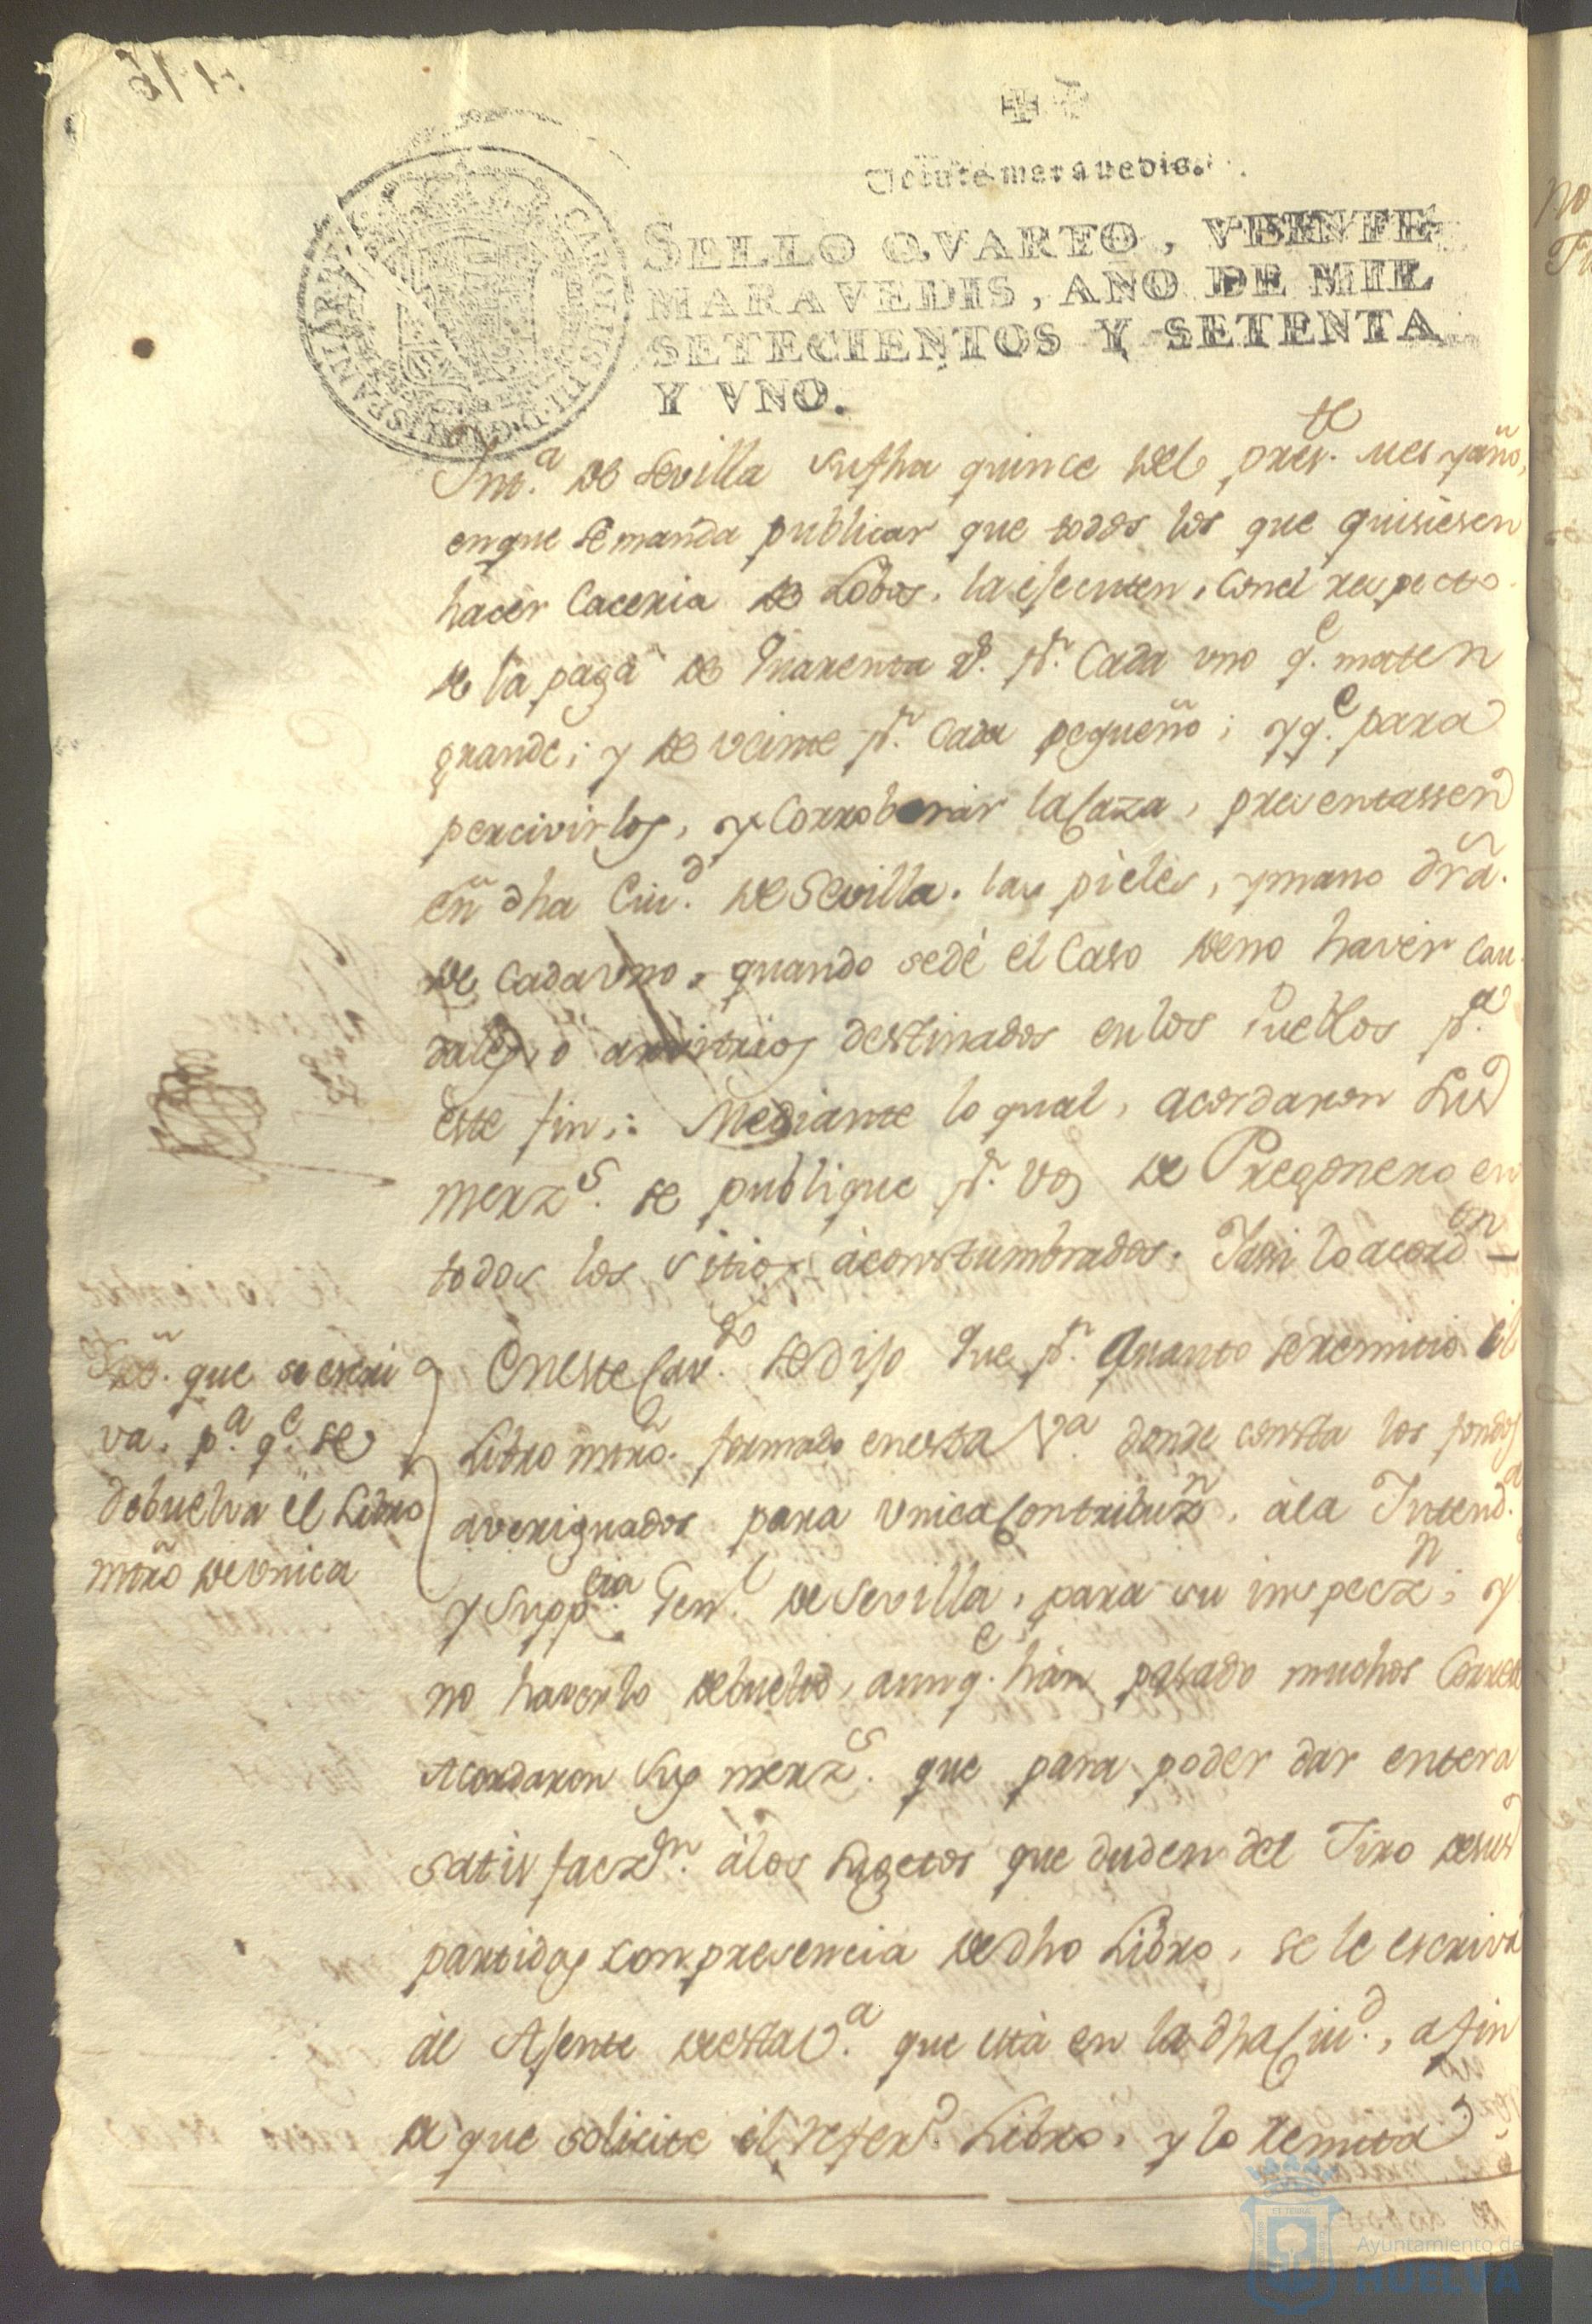 Veinte maravedis.
SELLO QVARTO, VEINTE
MARAVEDIS, AÑO DE MIL
SETECIENTOS Y SETENTA
Y VNO.
CAROLUS III D.G. HISPANIAR.
Int.ª de Sevilla su fha quince del pres.te mes y año,
en que se manda publicar que todos los que quisiesen
hacer Caceria de Lobos, la ejecuten, con el respecto
de la paga de Quarenta r.s p.r Cada uno q.e maten
grande; y de veinte p.r Cada pequeño; y q.e para
percivirlos, y Corroborar la Caza, presentassen
en dha Ciu.d de Sevilla las pieles, y mano dra.
de cada uno, quando se dé el Caso de no haver cau
dales, ó arvitrios destinados en los Pueblos p.a
este fin: Mediante lo qual, acordaron sus
merz.s se publique p.r voz de Pregonero en
todos los sitios acostumbrados. Y asi lo acord.on
que se escri
va, p.a q.e se
debuelva el Libro
mro de Unica
En este Cav.do se dijo Que p.r quanto se remitio el
Libro mro. formado en esta V.a donde consta los fondos
averiguados para Unica Contribuz.n, á la Intend.a
y Supp.cia Gen.l de Sevilla, para su inspecz.n, y
no haverlo debuelto, aunq.e hán pasado muchos Correos
Acordaron sus merz.s que para poder dar entera
satisfacz.on á los sugetos que duden del Tiro de sus
partidas con presencia de dho Libro, se le escriva
ál Ajente de esta V.a que está en la dha Ciu.d, a fin
de que solicite el refer.do Libro, y lo remita
Ayuntamiento de
HUELVA